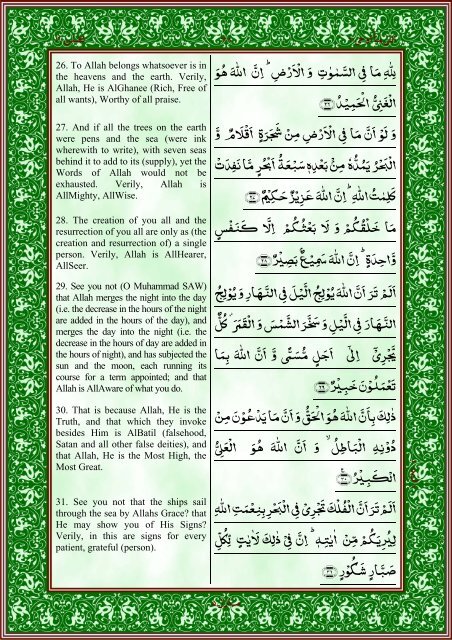 26. To Allah belongs whatsoever is in
the heavens and the earth. Verily,
Allah, He is AlGhanee (Rich, Free of
all wants), Worthy of all praise.
لِلّٰهِ مَا فِي السَّمٰوٰتِ وَ الْاَرْضِ ؕ اِنَّ اللّٰهَ هُوَ
الْغَنِيُّ الْحَمِيْدُ ﴿۲۶﴾
27. And if all the trees on the earth
were pens and the sea (were ink
wherewith to write), with seven seas
behind it to add to its (supply), yet the
Words of Allah would not be
exhausted. Verily, Allah is
AllMighty, AllWise.
وَ لَوْ اَنَّ مَا فِي الْاَرْضِ مِنْ شَجَرَةٍ اَقْلَامٌ وَّ
الْبَحْرُ يَمُدُّهٗ مِنْۢ بَعْدِهٖ سَبْعَةُ اَبْحُرٍ مَّا نَفِدَتْ
كَلِمٰتُ اللّٰهِ ؕ اِنَّ اللّٰهَ عَزِيْزٌ حَكِيْمٌ ﴿۲۷﴾
28. The creation of you all and the
resurrection of you all are only as (the
creation and resurrection of) a single
person. Verily, Allah is AllHearer,
AllSeer.
مَا خَلْقُكُمْ وَ لَا بَعْثُكُمْ اِلَّا كَنَفْسٍ
وَّاحِدَةٍ ؕ اِنَّ اللّٰهَ سَمِيْعٌۢ بَصِيْرٌ ﴿۲۸﴾
29. See you not (O Muhammad SAW)
that Allah merges the night into the day
(i.e. the decrease in the hours of the night
are added in the hours of the day), and
merges the day into the night (i.e. the
decrease in the hours of day are added in
the hours of night), and has subjected the
sun and the moon, each running its
course for a term appointed; and that
Allah is AllAware of what you do.
اَلَمْ تَرَ اَنَّ اللّٰهَ يُوْلِجُ الَّيْلَ فِي النَّهَارِ وَ يُوْلِجُ
النَّهَارَ فِي الَّيْلِ وَ سَخَّرَ الشَّمْسَ وَ الْقَمَرَ ؗ كُلٌّ
يَّجْرِيْۤ اِلٰۤى اَجَلٍ مُّسَمًّى وَّ اَنَّ اللّٰهَ بِمَا
تَعْمَلُوْنَ خَبِيْرٌ ﴿۲۹﴾
30. That is because Allah, He is the
Truth, and that which they invoke
besides Him is AlBatil (falsehood,
Satan and all other false deities), and
that Allah, He is the Most High, the
Most Great.
ذٰلِكَ بِاَنَّ اللّٰهَ هُوَ الْحَقُّ وَ اَنَّ مَا يَدْعُوْنَ مِنْ
دُوْنِهِ الْبَاطِلُ ۙ وَ اَنَّ اللّٰهَ هُوَ الْعَلِيُّ
الْكَبِيْرُ ﴿۳۰﴾
31. See you not that the ships sail
through the sea by Allahs Grace? that
He may show you of His Signs?
Verily, in this are signs for every
patient, grateful (person).
اَلَمْ تَرَ اَنَّ الْفُلْكَ تَجْرِيْ فِي الْبَحْرِ بِنِعْمَتِ اللّٰهِ
لِيُرِيَكُمْ مِّنْ اٰيٰتِهٖ ؕ اِنَّ فِيْ ذٰلِكَ لَاٰيٰتٍ لِّكُلِّ
صَبَّارٍ شَكُوْرٍ ﴿۳۱﴾